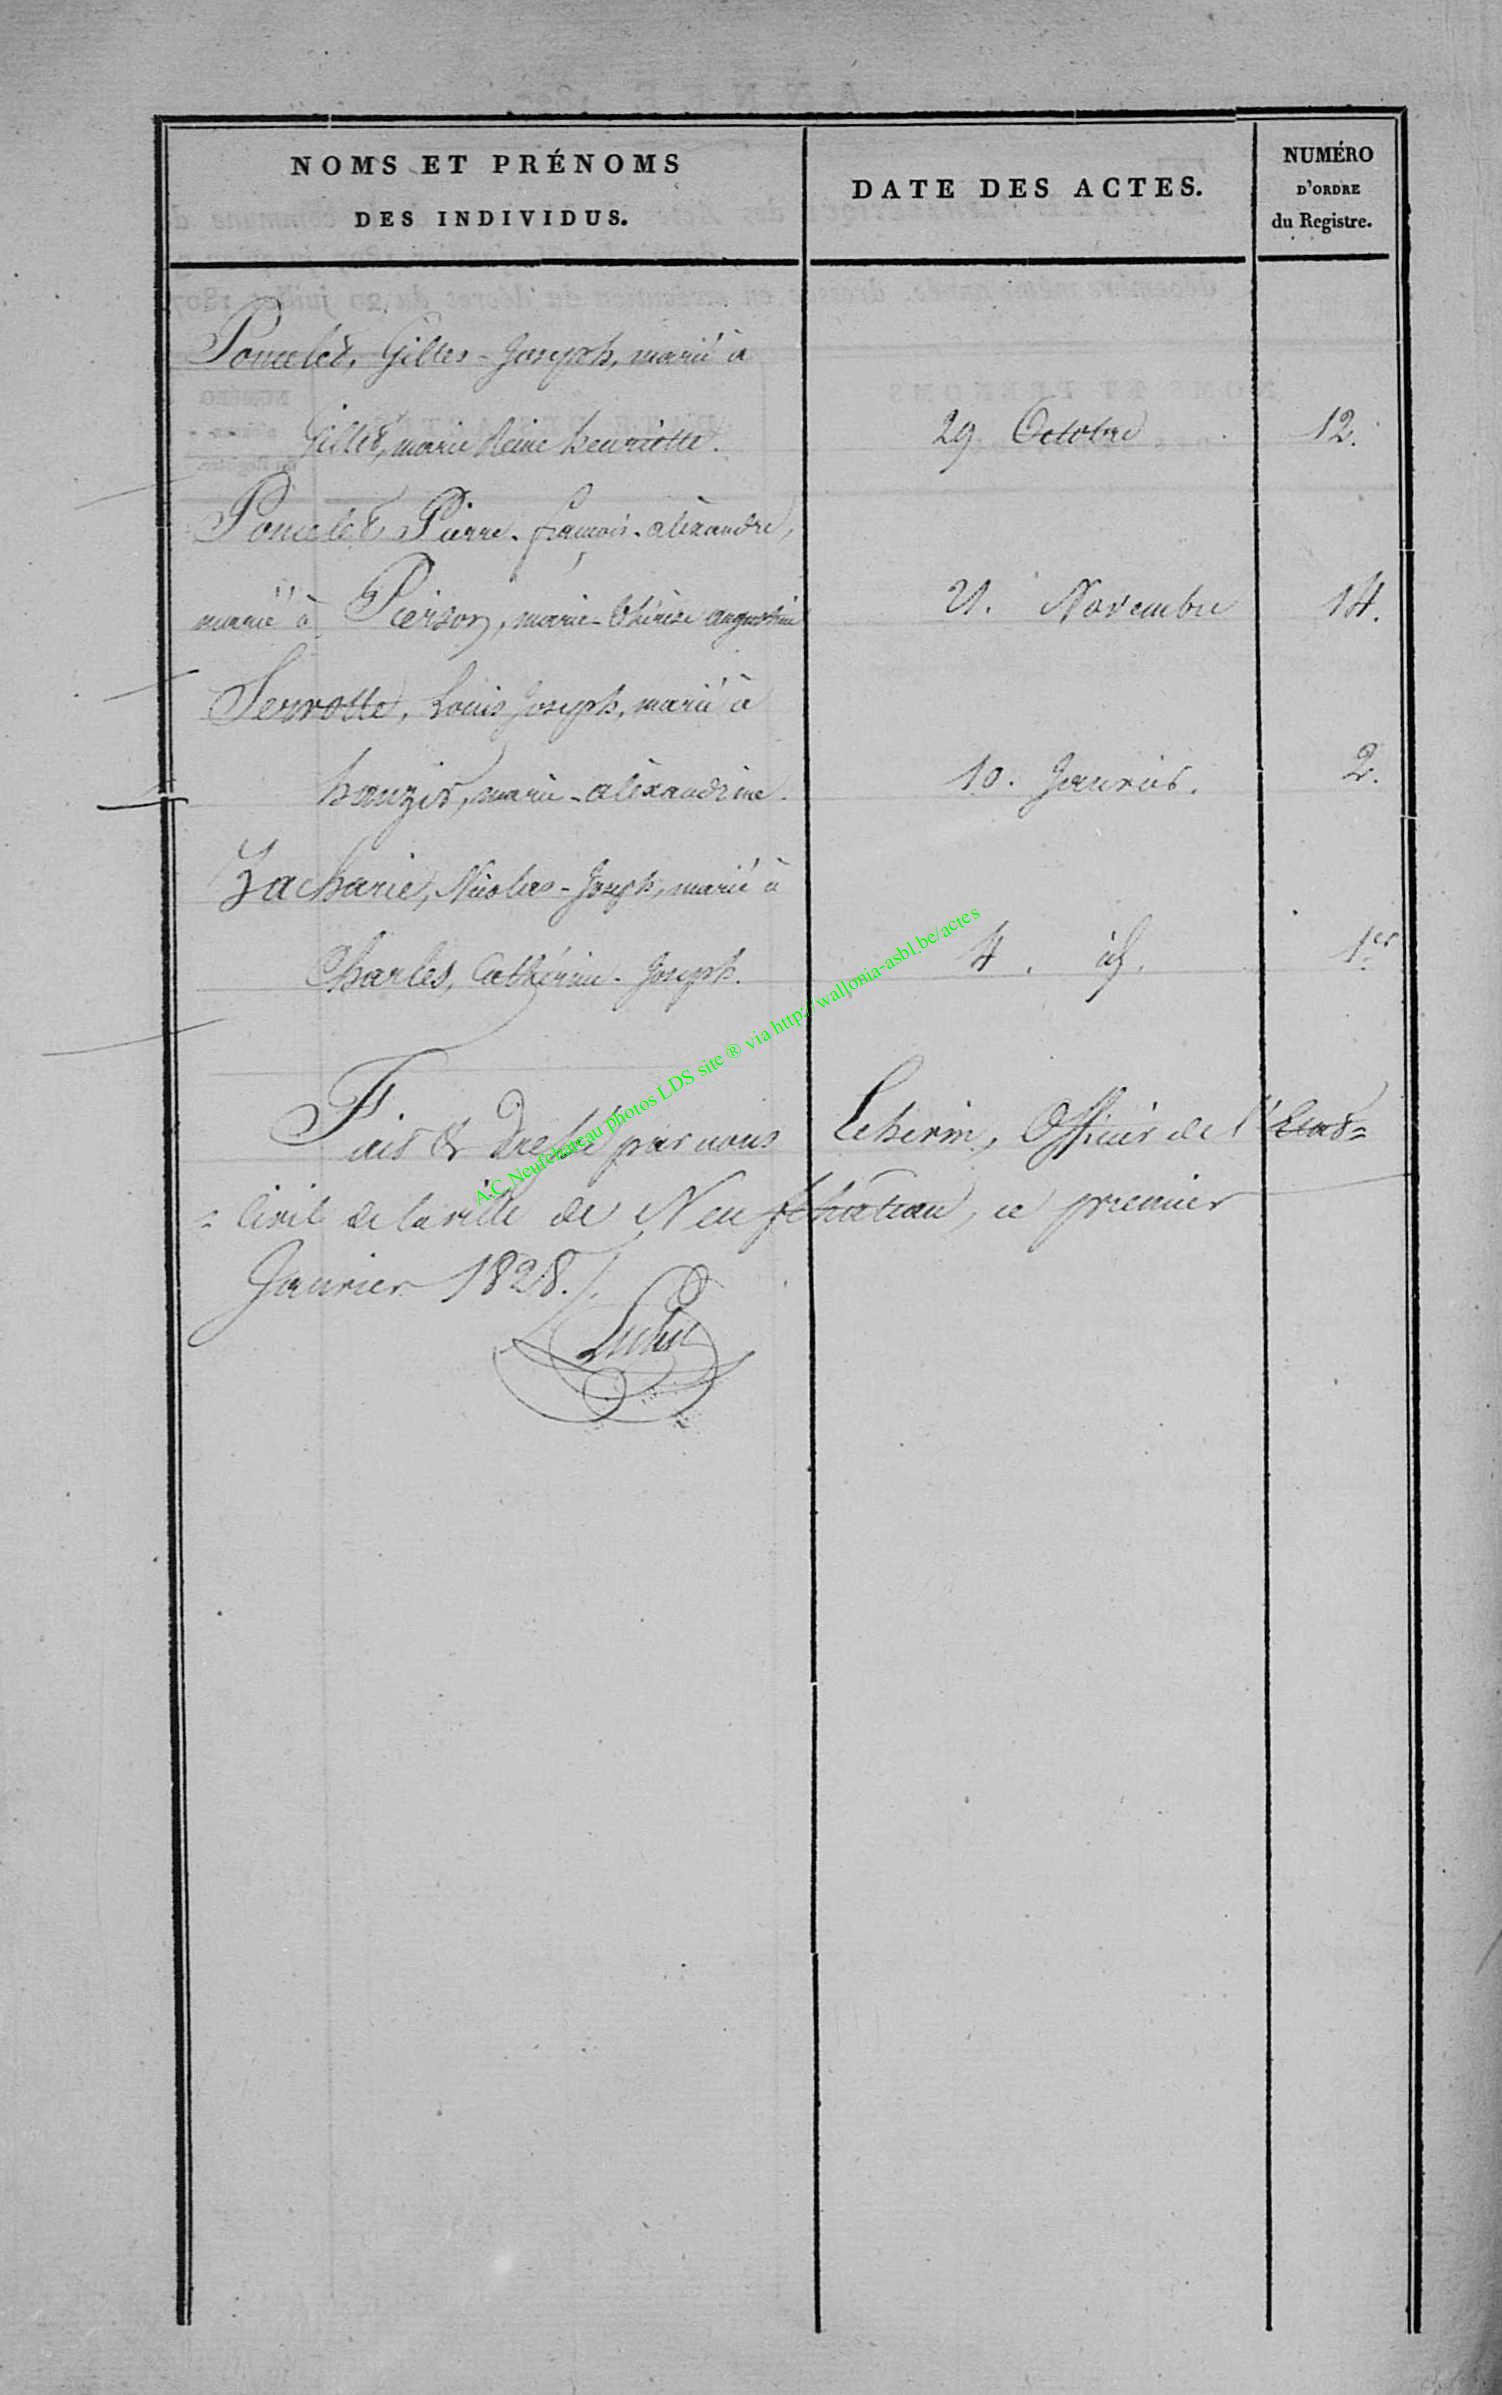 NOMS ET PRÉNOMS
DES INDIVIDUS.
DATE DES ACTES.
NUMÉRO
D'ORDRE
du Registre.
Poncelet, Gilles-Joseph, marié à
Gillet, marie Reine henriette. 29 Octobre 12.
Poncelet Pierre-françois-alexandre,
marié à Pierson, marie-thérèse augustine 21. Novembre 14.
Serrotte, Louis Joseph, marié à
marie-alexandrine. 10. Janvier. 2.
Zacharie, Nicolas-Joseph, marié à
Charles, Cathérine-Joseph. 4. id. 1er
Fait & dressé par nous Officier de l'état=
=Civil de la ville de Neufchâteau, ce premier
Janvier 1828./.
A.C. Neufchateau photos LDS site ® via http://wallonia-asbl.be/actes